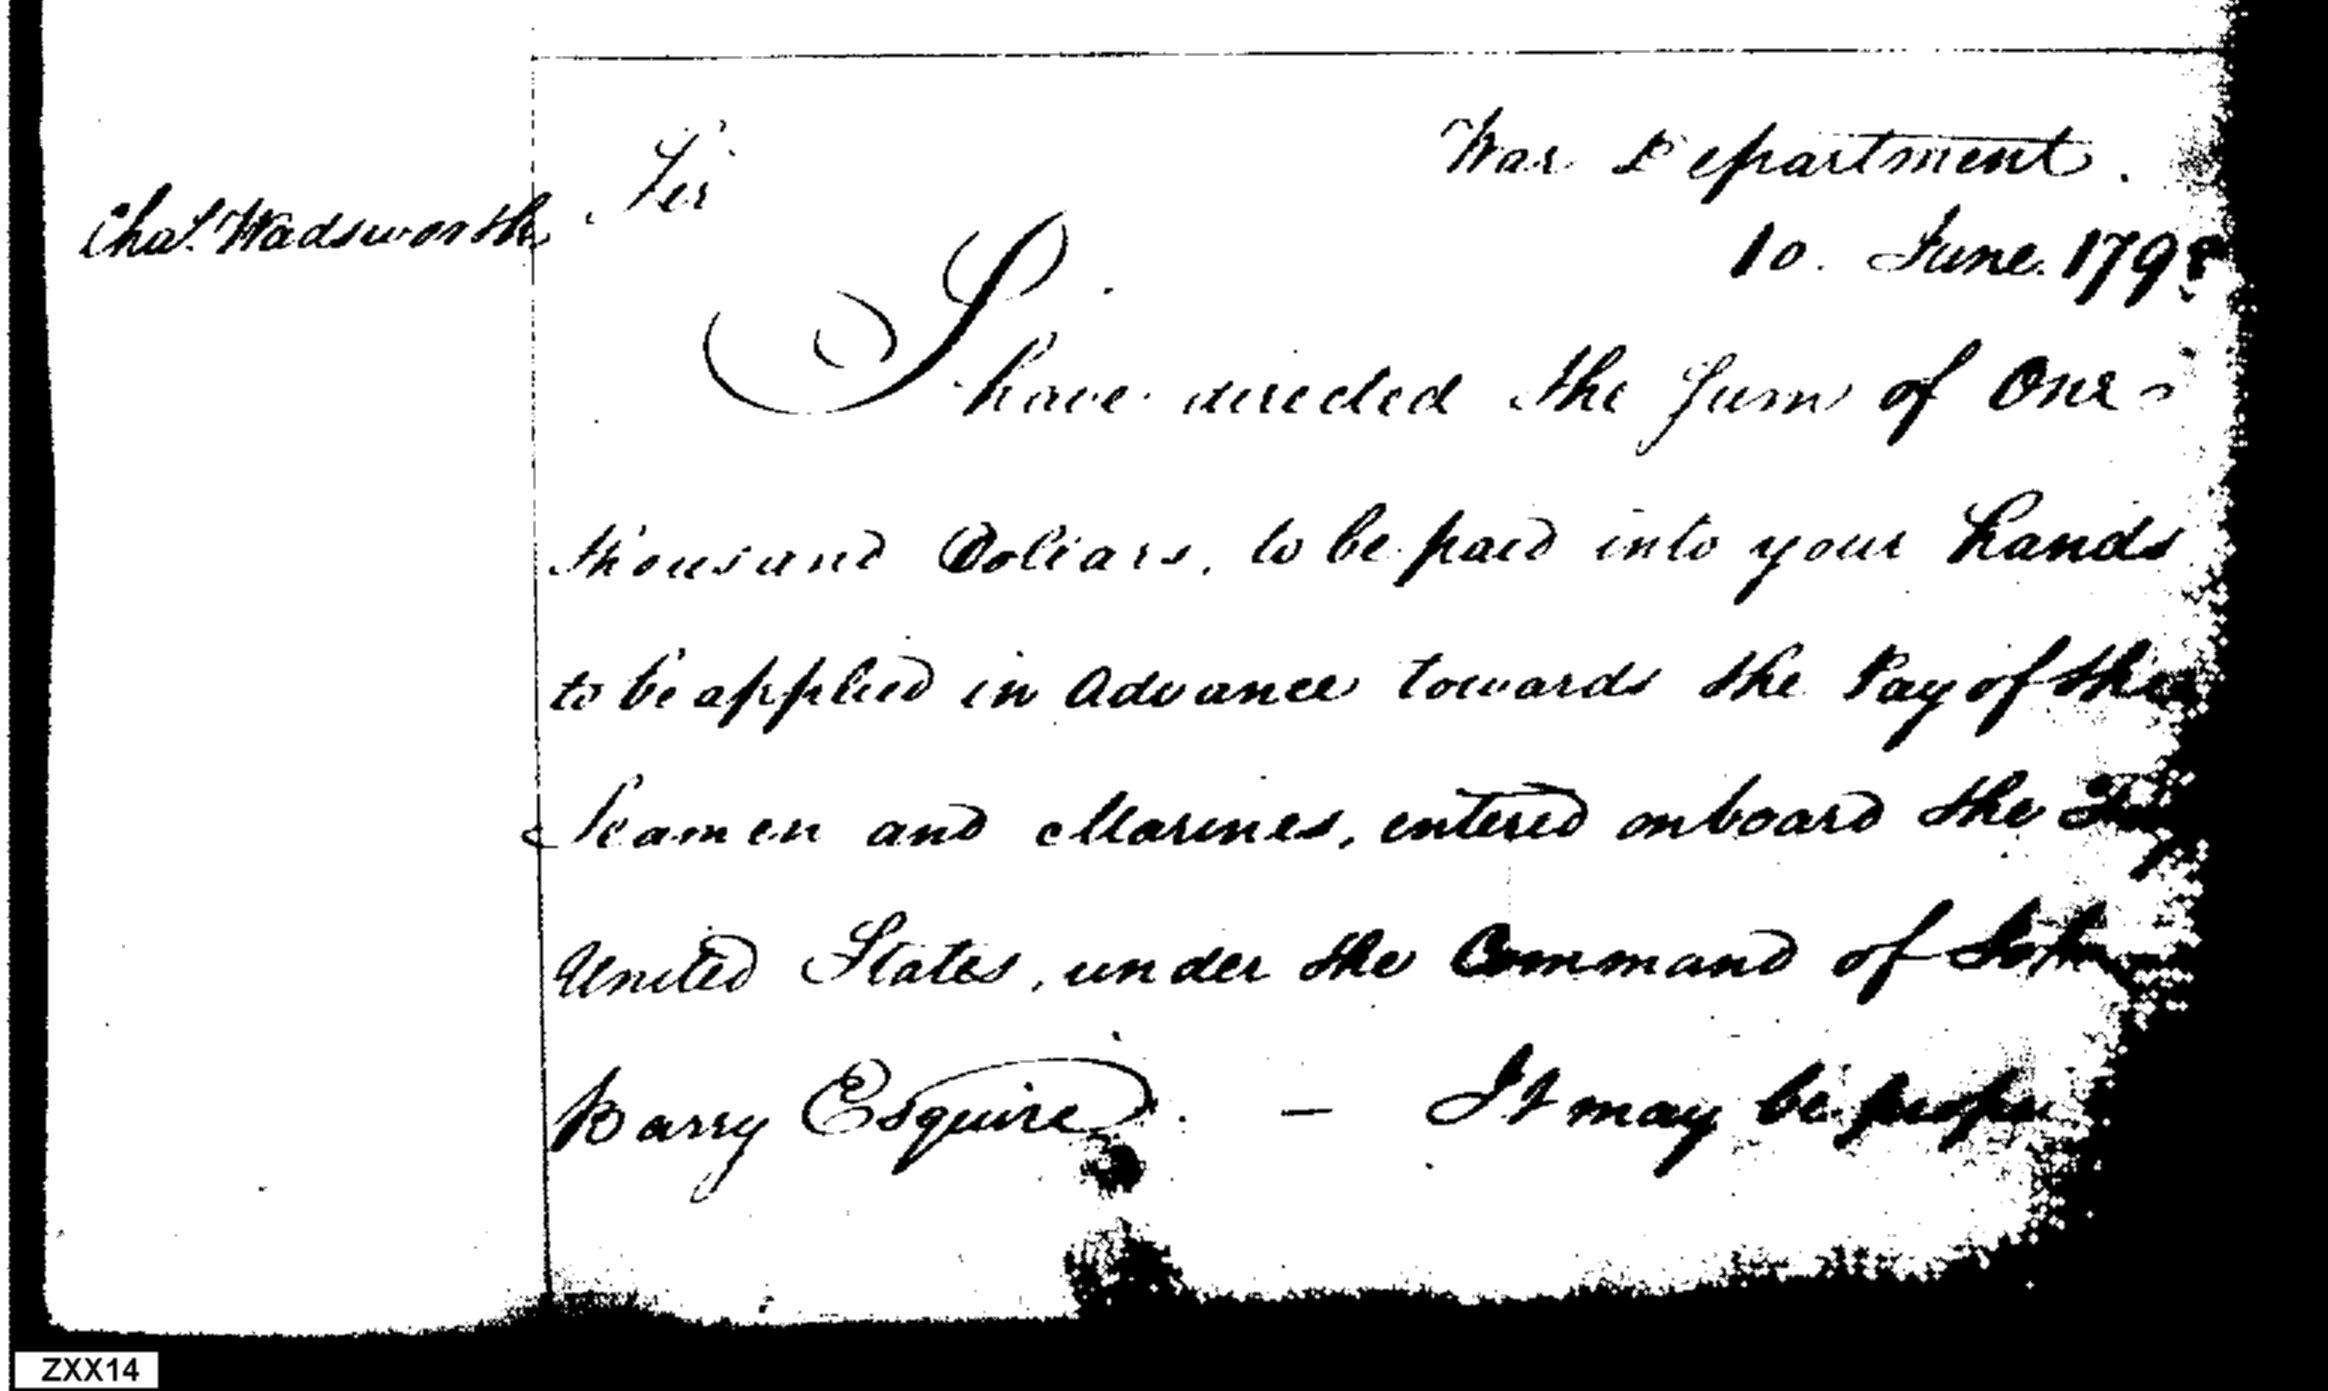 Sir
War Department.
Chas. Wadsworth
10. June. 1798
I have directed the Sum of One
thousand Dollars, to be paid into your hands
to be applied in Advance towards the Pay of the
Seamen and Marines, entered onboard the
United States, under the Command of John
Barry Esquire. — It may be proper
ZXX14